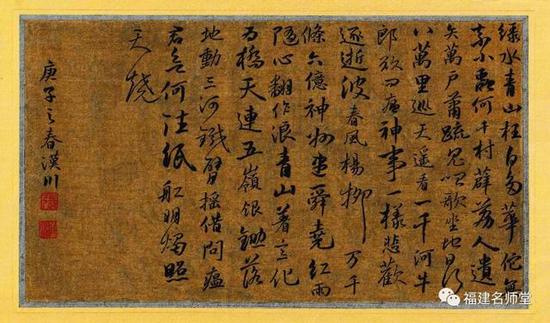 绿水青山枉自多華佗無
奈小蟲何千村薜荔人遺
矢萬户蕭疏鬼唱歌坐地日行
八萬里巡天遥看一千河牛
郎欲问瘟神事一樣悲歡
逐逝波春風楊柳万千
條六億神州盡舜堯红雨
隨心翻作浪青山著意化
为橋天連五嶺银鋤落
地動三河鐵臂摇借問瘟
君欲何往纸船明燭照
天燒
庚子之春漢川
福建名师堂